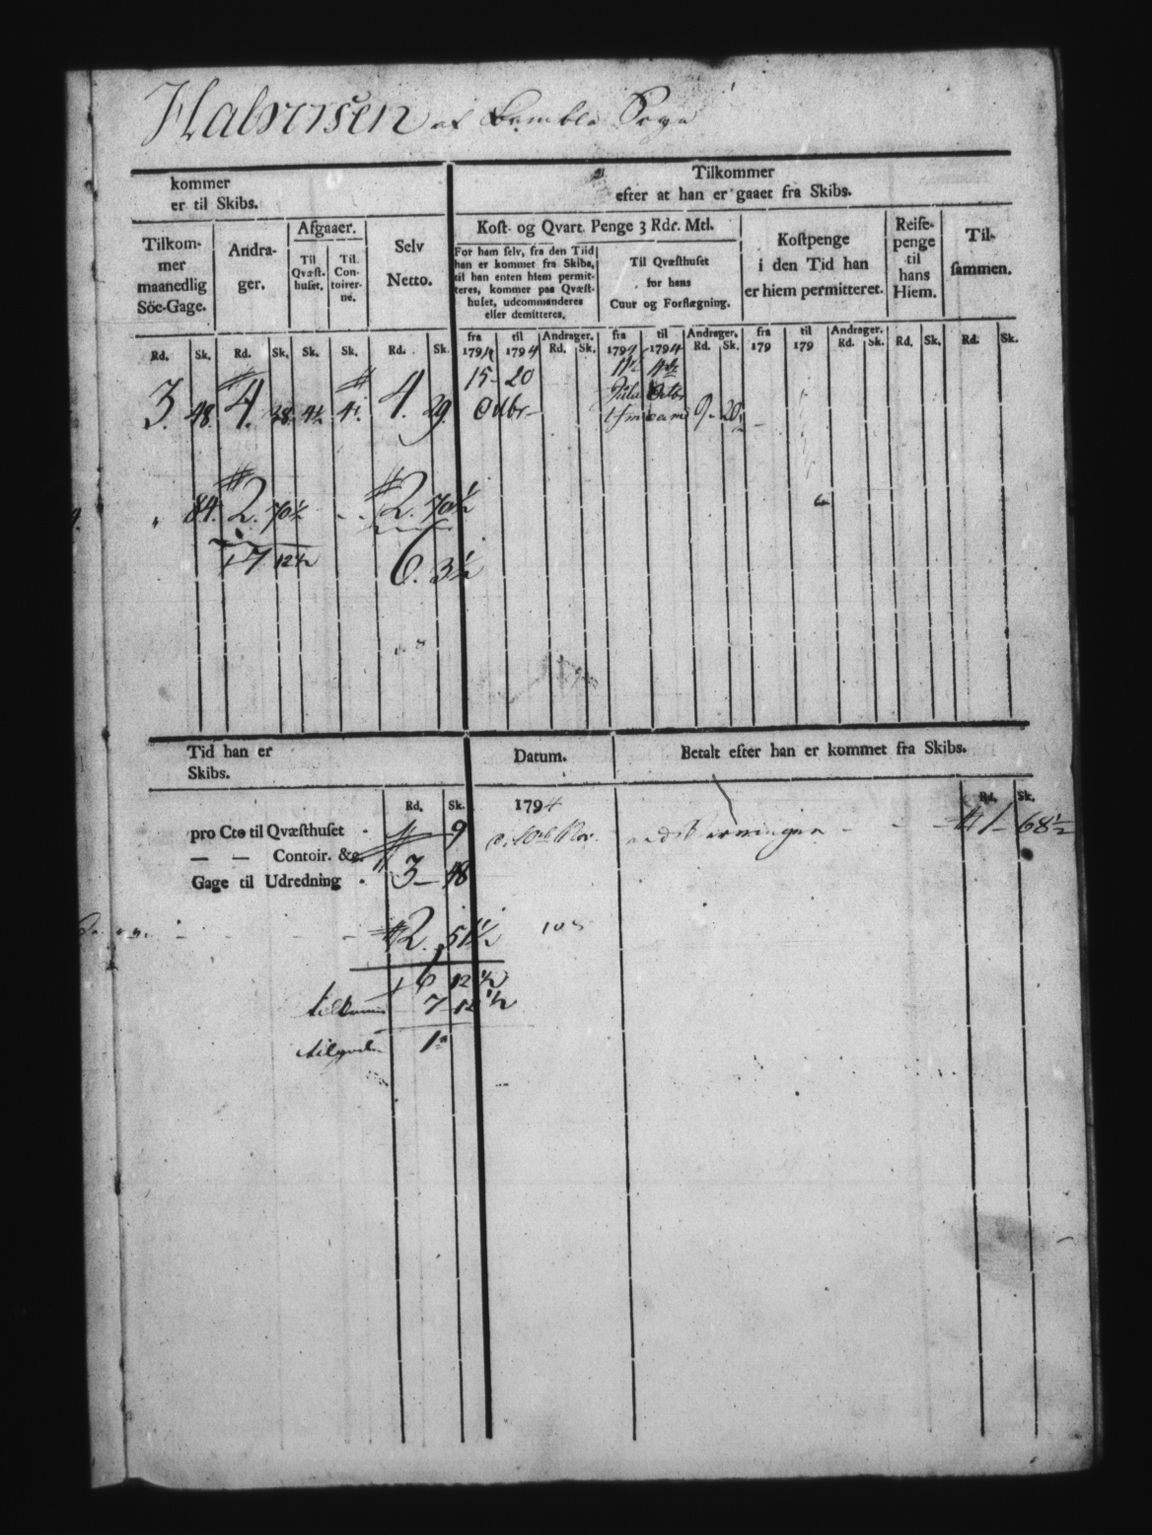 Halvorsen af Bamble Sogn
kommer
er til Skibs.
Tilkommer
efter at han er gaaet fra Skibs.
Tilkom-
mer
maanedlig
Söe-Gage.
Andra-
ger.
Afgaaer.
Til
Qvæst-
huset.
Til
Con-
toirer-
ne.
Selv
Netto.
Kost- og Qvart. Penge 3 Rdr. Mtl.
For ham selv, fra den Tiid
han er kommet fra Skibs,
til han enten hiem permit-
teres, kommer paa Qvæst-
huset, udcommanderes
eller demitteres.
Til Qvæsthuset
for hans
Cuur og Forflægning.
Kostpenge
i den Tid han
er hiem permitteret.
Reise-
penge
til
hans
Hiem.
Til-
sammen.
Rd. Sk. Rd. Sk. Sk. Sk. Rd. Sk.
fra 1794 til 1794 Andrager. Rd. Sk.
fra 1794 til 1794 Andrager. Rd. Sk.
fra 179 til 179 Andrager. Rd. Sk.
Rd. Sk. Rd. Sk.
3. 48. 4. 38. 4½ 4. 4. 29. 15 - 20
Octbr. 9 - 20
84. 2. 70½ 2. 70½
7 12½ 6. 3½
Tid han er
Skibs.
Datum.
Betalt efter han er kommet fra Skibs.
Rd. Sk. 1794 Rd. Sk.
pro Cto til Qvæsthuset 9 Nov. 1 - 68½
— — Contoir. &c.
Gage til Udredning 3 - 48
2. 51½
6 12½
tilkommer 7 - 12½
1